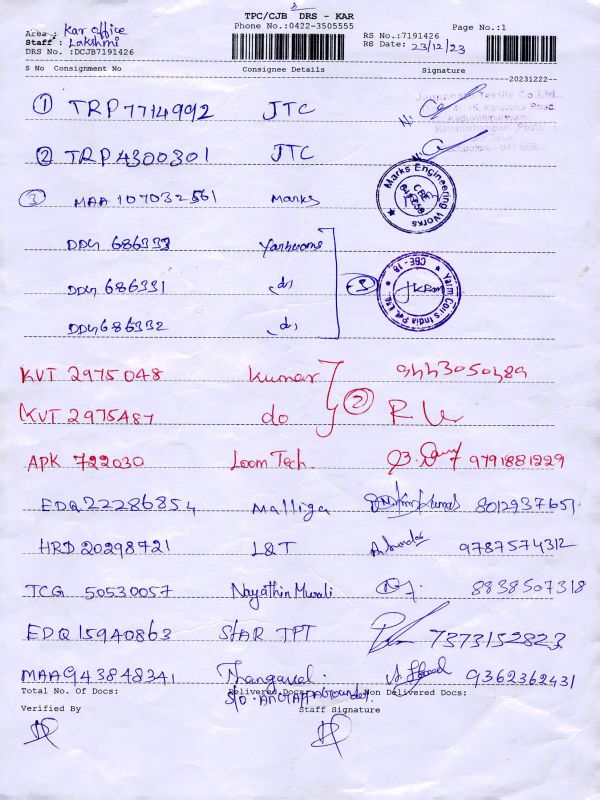 TPC/CJB DRS - KAR
Phone No.:0422-3505555
Page No.:1
Area : Kar office
Staff : Lakshmi
DRS No. :DCJB7191426
RS No.:7191426
RS Date: 23/12/23
S No Consignment No Consignee Details Signature
20231222
1 TRP 7714992 JTC
2 TRP 4300301 JTC
3 MAA 107032561 Marks
Marks Engineering Works CBE
DDG 686333
DDG 686331 do 3
Yarn Con's India Pvt. Ltd. CBE - 18
DDG 686332 do
KVT 2975048 Kumar 9443050489
KVT 2975487 do 2
APK 722030 Loom Tech 9791881229
EDQ 22286854 Malliga 8012937651
HRD 20298721 L&T 9787574312
TCG 50530057 Nayathin Murali 8838507318
EDQ 15940863 STAR TPT 7373152823
MAA 943848341 Thangavel 9362362431
Total No. Of Docs: Delivered Docs: Non Delivered Docs:
S/O
Verified By Staff Signature